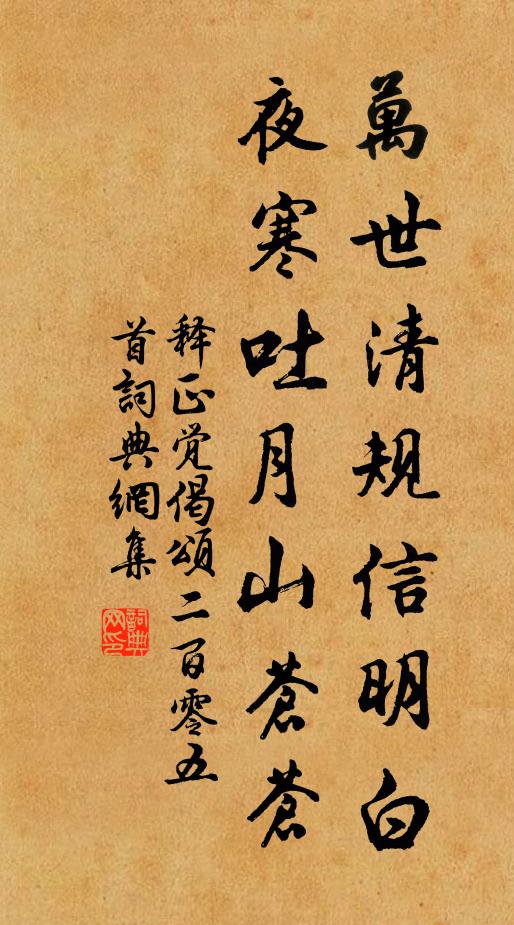 萬世清規信明白
夜寒吐月山蒼蒼
释正觉偈頌二百零五
首詞典網集
詞典
网印